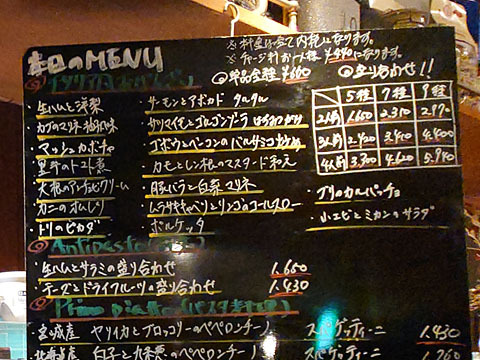 本日のMENU
※料金は全て内税になります。
※チャージ料お一人様 ¥440になります。
◎単品全種 ¥660
◎盛り合わせ!!
・生ハムと洋梨
・サーモンとアボカド タルタル
・カブのマリネ 柚風味
・サツマイモとゴルゴンゾーラ はちみつがけ
・マッシュカボチャ
・ゴボウとベーコンのバルサミコ炒め
・里芋のトマト煮
・カモとレンコンのマスタード和え
・大根のアンチョビクリーム
・豚バラと白菜マリネ
・カニのオムレツ
・ムラサキキャベツとリンゴのコールスロー
・トリのピカタ
・ポルケッタ
5種 7種 9種
2人前 1,650 2,310 2,970
3人前 3,410 4,400
4人前 3,300 4,620 5,940
・ブリのカルパッチョ
・小エビとミカンのサラダ
◎Antipasto
・生ハムとサラミの盛り合わせ 1,650
・チーズとドライフルーツの盛り合わせ 1,430
◎Primo piatto
宮城産 ヤリイカとブロッコリーのペペロンチーノ スパゲッティーニ 1,430
北海道産 白子と九条葱のペペロンチーノ スパゲッティーニ